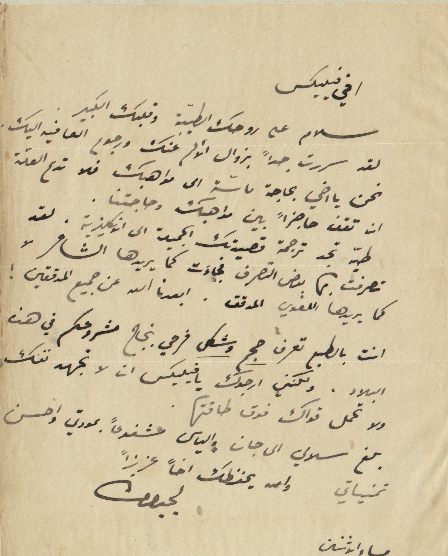 اخي فيليكس
سلام على روحك الطيبة وقلبك الكبير.
لقد سررت جداً بزوال الالم عنك ورجوع العافية اليك.
نحن يا اخي بحاجة ماسّة الى مواهبك فلا تدع العلّة
ان تقف حاجزاً بين مواهبك وحاجتنا.
طيّه تجد ترجمة قصيدتك الجميلة الى الانكليزية. لقد
تصرفت بها بعض التصرف فجاءت كما يريدها الشاعر لا
كما يريدها اللغوي المدقق. ابعدنا الله عن جميع المدققين!
انت بالطبع تعرف حجم وشكل فرحي بنجاح مشروعكم في هذه
البلاد. ولكنني ارجوك يا فيليكس ان لا تجهد نفسك
ولا تحمل قواك فوق طاقتها.
بلغ سلامي الى جان والياس مشفوعاً بمودتي واحسن
تمنياتي والله يحفظك اخاً عزيزاً
لجبران
مساء الاثنين